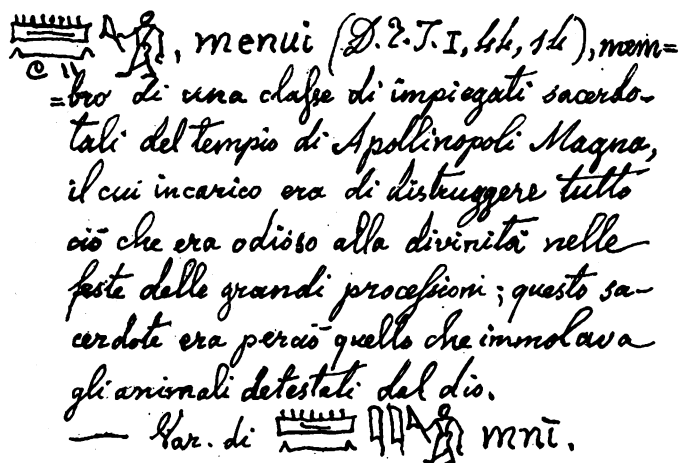 , menui (D.T.I, 44, 14), mem=
=bro di una classe di impiegati sacerdo-
tali del tempio di Apollinopoli Magna,
il cui incarico era di distruggere tutto
ciò che era odioso alla divinità nelle
feste delle grandi processioni; questo sa-
cerdote era perciò quello che immolava
gli animali detestati dal dio.
— Var. di mnī.